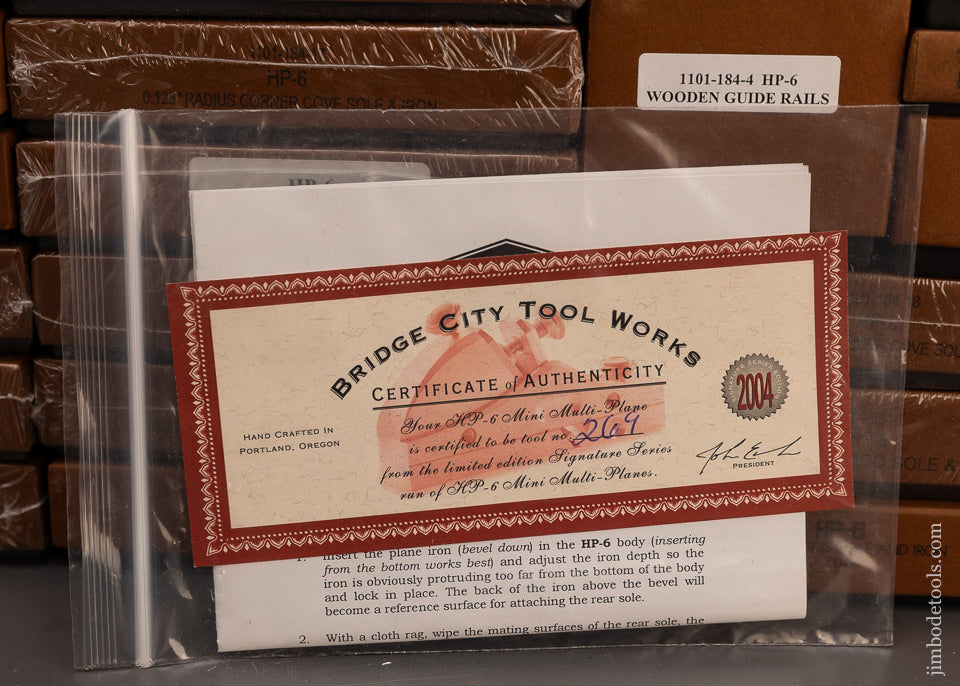 1101-184-17
HP-6
0.123" RADIUS CORNER COVE SOLE & IRON
1101-184-4 HP-6
WOODEN GUIDE RAILS
HP-6
BRIDGE CITY TOOL WORKS
CERTIFICATE of AUTHENTICITY
Your HP-6 Mini Multi-Plane
is certified to be tool no. 269
from the limited edition Signature Series
run of HP-6 Mini Multi-Planes.
HAND CRAFTED IN
PORTLAND, OREGON
2004
PRESIDENT
1. Insert the plane iron (bevel down) in the HP-6 body (inserting
from the bottom works best) and adjust the iron depth so the
iron is obviously protruding too far from the bottom of the body
and lock in place. The back of the iron above the bevel will
become a reference surface for attaching the rear sole.
2. With a cloth rag, wipe the mating surfaces of the rear sole, the
OVE SOL
SOLE &
HP-6
AND IRON
jimbodetools.com